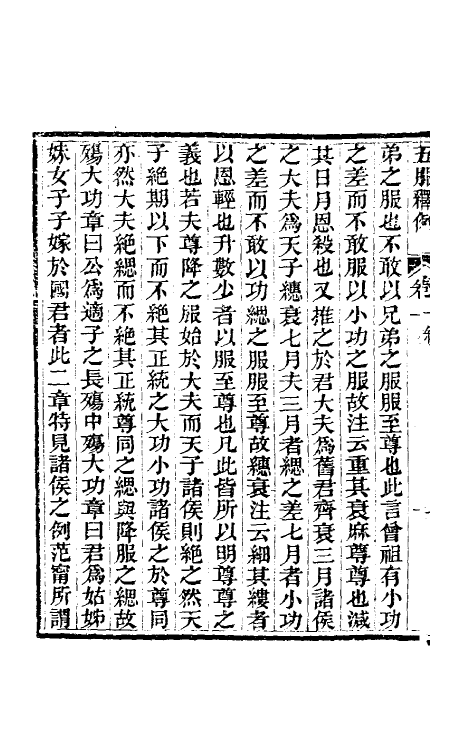 五服釋例
卷一
弟之服也不敢以兄弟之服服至尊也此言曾祖有小功
之差而不敢服以小功之服故注云重其衰麻尊尊也減
其日月恩殺也又推之於君大夫爲舊君齊衰三月諸侯
之大夫爲天子繐衰七月夫三月者緦之差七月者小功
之差而不敢以功緦之服服至尊故繐衰注云細其縷者
以恩輕也升數少者以服至尊也凡此皆所以明尊尊之
義也若夫尊降之服始於大夫而天子諸侯則絶之然天
子絶期以下而不絶其正統之大功小功諸侯之於尊同
亦然大夫絶緦而不絶其正統尊同之緦與降服之緦故
殤大功章曰公爲適子之長殤中殤大功章曰君爲姑姊
妹女子子嫁於國君者此二章特見諸侯之例范甯所謂